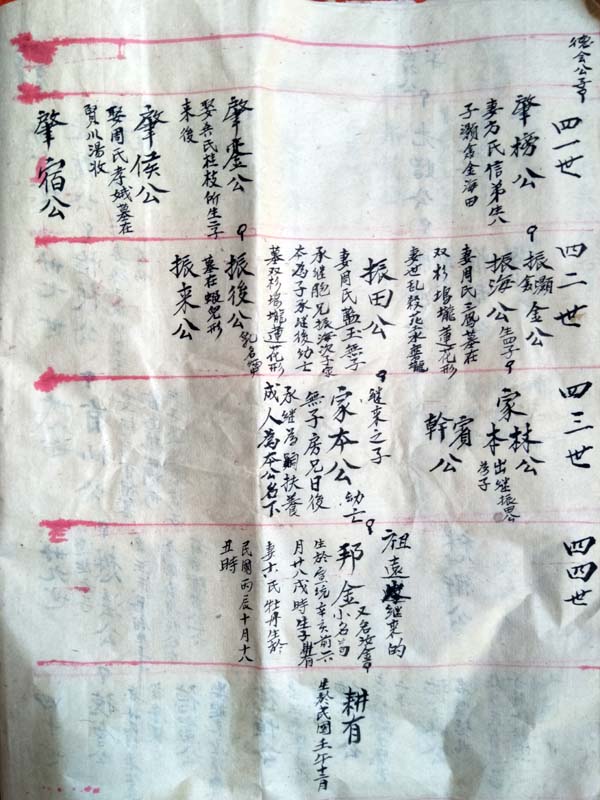 德会公子
四一世
肇榜公
妻方氏信弟生八
子灝貪金海田
肇銮公
娶吴氏桂枝所生二子
来後
肇侯公
娶周氏孝娥墓在
賢川湯收
肇宿公
四二世
振灝
金公
振海公生四子
妻周氏三鳳墓在
双杉塢壠蓮花形
振田公
妻周氏藍玉無子
承继胞兄振海次子家
本為子承继後幼亡
墓双杉塢壠蓮花形
振後公
乳名
墓在蛾兒形
振来公
四三世
家林公
本出继振田公
為子
賓公
幹
继来之子
家本公幼亡
無子房兄日後
承继為嗣扶養
成人為本公名下
四四世
祖遠继来的
邦金
又名如金
小名
生於
辛亥前六
月廿八戌時生子耕有
妻方氏牡丹生於
民國丙辰十月十八
丑時
耕有
生於民國壬午十二月